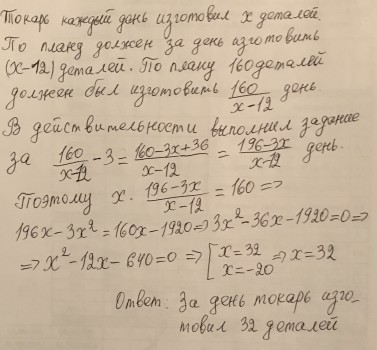 Токарь каждый день изготовил x деталей.
По плану должен за день изготовить
(x-12) деталей. По плану 160 деталей
должен был изготовить 160/(x-12) день.
В действительности выполнил задание
за 160/(x-12) - 3 = (160-3x+36)/(x-12) = (196-3x)/(x-12) день.
Поэтому x · (196-3x)/(x-12) = 160 =>
196x-3x² = 160x-1920 => 3x²-36x-1920=0 =>
=> x²-12x-640=0 => [x=32 x=-20 => x=32
Ответ: За день токарь изго-
товил 32 деталей